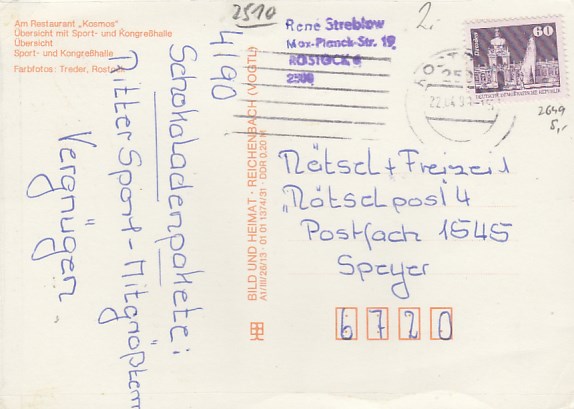 Am Restaurant „Kosmos"
Übersicht mit Sport- und Kongreßhalle
Übersicht
Sport- und Kongreßhalle
Farbfotos: Treder, Rostock
2510
2.-
René Streblow
Max-Planck-Str. 19
ROSTOCK 6
2500
60
DEUTSCHE DEMOKRATISCHE REPUBLIK
2649
5,-
4/90
Schokoladenpakete:
Ritter Sport - Mitgrößtem
Vergnügen
BILD UND HEIMAT · REICHENBACH (VOGTL)
A1/III/26/13 · 01 01 1374/31 · DDR 0,20 M
Rätsel + Freizeit
"Rätselpost 4
Postfach 1545
Speyer
6720